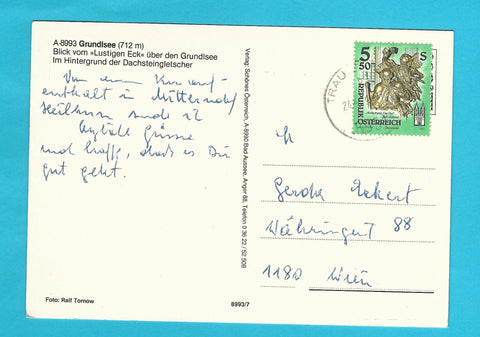 A-8993 Grundlsee (712 m)
Blick vom »Lustigen Eck« über den Grundlsee
Im Hintergrund der Dachsteingletscher
Von einem Kurauf-
enthalt in Mitterndorf
Heilbrunn sende ich
herzliche Grüsse
und hoffe, dass es Dir
gut geht.
Verlag: Schönes Österreich, A-8990 Bad Aussee, Anger 88, Telefon 0 36 22 / 52 508
TRAU
5 50 S
REPUBLIK
ÖSTERREICH
Gerda Eckert
Währingerst 88
1180 Wien
Foto: Ralf Tornow
8993/7